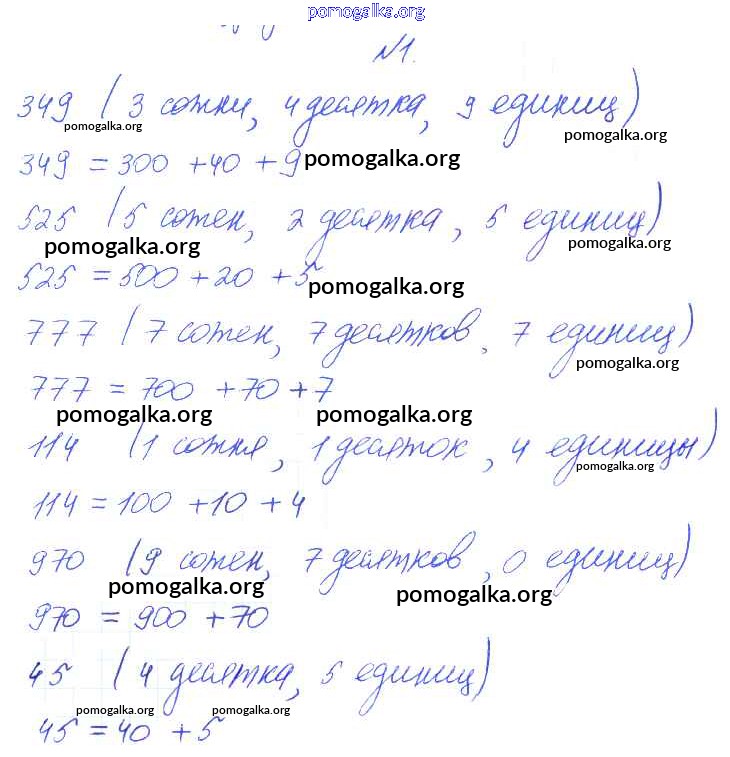 pomogalka.org
№1.
349 (3 сотни, 4 десятка, 9 единиц)
pomogalka.org pomogalka.org
349 = 300 + 40 + 9 pomogalka.org
525 (5 сотен, 2 десятка, 5 единиц)
pomogalka.org pomogalka.org
525 = 500 + 20 + 5 pomogalka.org
777 (7 сотен, 7 десятков, 7 единиц)
pomogalka.org
777 = 700 + 70 + 7
pomogalka.org pomogalka.org
114 (1 сотня, 1 десяток, 4 единицы)
pomogalka.org
114 = 100 + 10 + 4
970 (9 сотен, 7 десятков, 0 единиц)
pomogalka.org pomogalka.org
970 = 900 + 70
45 (4 десятка, 5 единиц)
pomogalka.org pomogalka.org
45 = 40 + 5